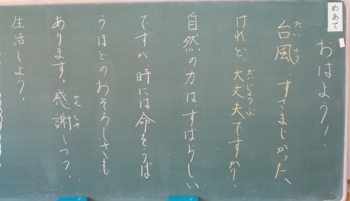 めあて
おはよう!
台風、すさまじかった
けれど、大丈夫ですか?
自然の力はすばらしい
ですが時には命をうば
うほどのおそろしさも
あります。感謝しつつ、
生活しよう。